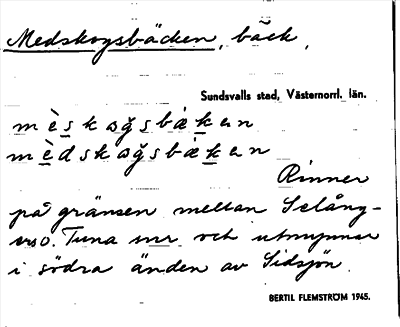 Medskogsbäcken, bäck,
Sundsvalls stad, Västernorrl. län.
mès̱koǥs̱bák̠en
mèdskoǥs̱bák̠en
Rinner
på gränsen mellan Selång-
ers o. Tuna snr och utmynnar
i södra änden av Sidsjön.
BERTIL FLEMSTRÖM 1945.